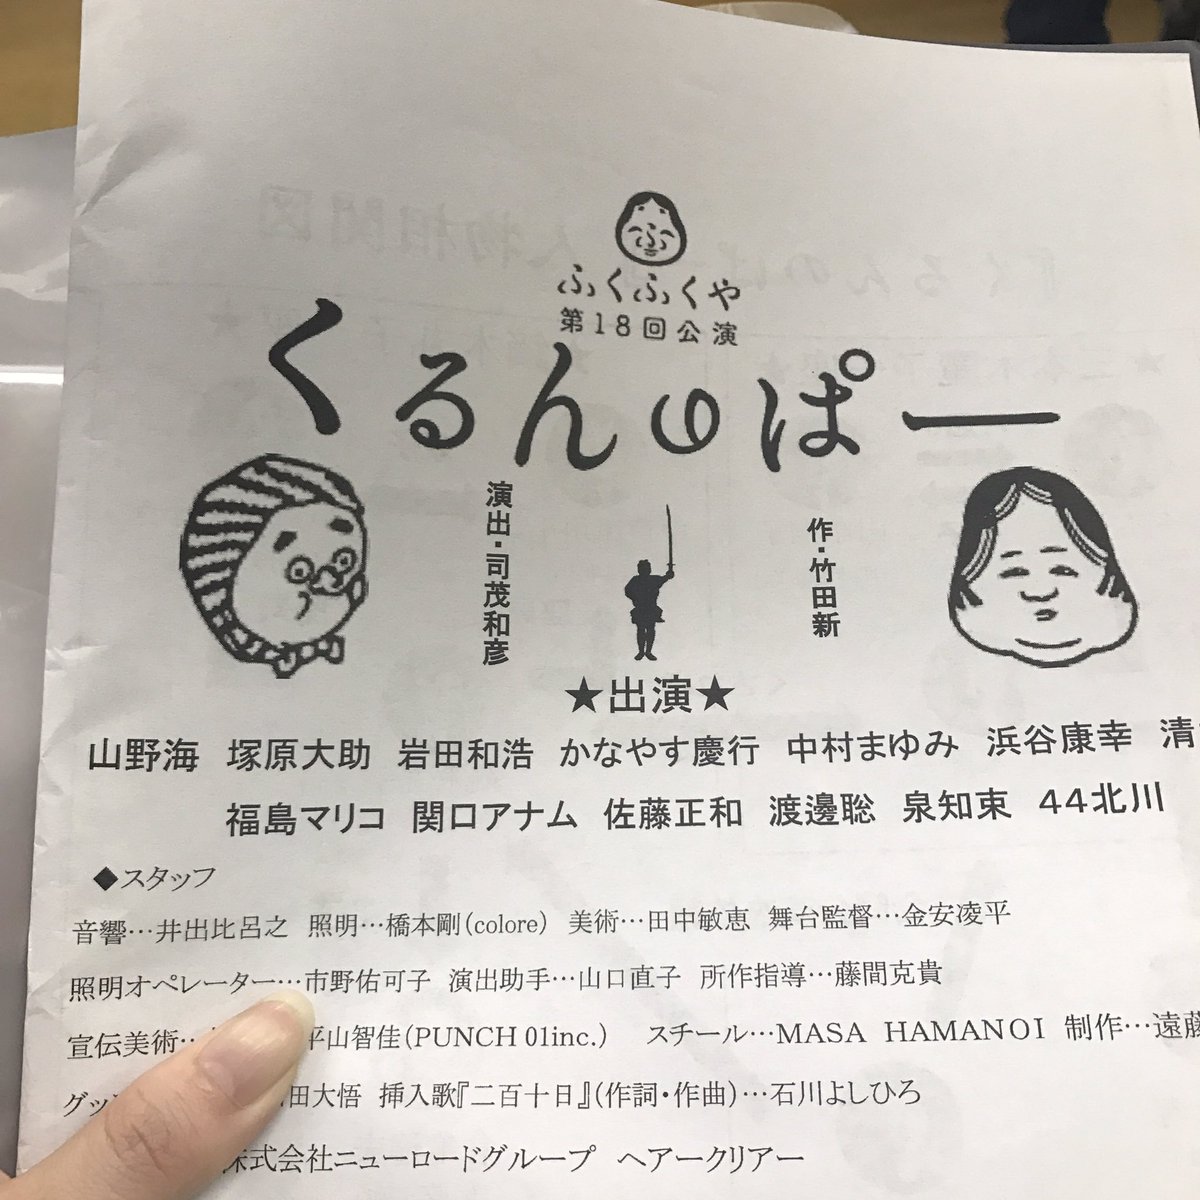 ふくふくや
第18回公演
くるんのぱー
作・竹田新
演出・司茂和彦
★出演★
山野海 塚原大助 岩田和浩 かなやす慶行 中村まゆみ 浜谷康幸 清
福島マリコ 関口アナム 佐藤正和 渡邊聡 泉知束 44北川
◆スタッフ
音響…井出比呂之 照明…橋本剛(colore) 美術…田中敏恵 舞台監督…金安凌平
照明オペレーター…市野佑可子 演出助手…山口直子 所作指導…藤間克貴
宣伝美術… 平山智佳(PUNCH 01inc.) スチール…MASA HAMANOI 制作…遠藤
グッ 田大悟 挿入歌『二百十日』(作詞・作曲)…石川よしひろ
株式会社ニューロードグループ ヘアークリアー